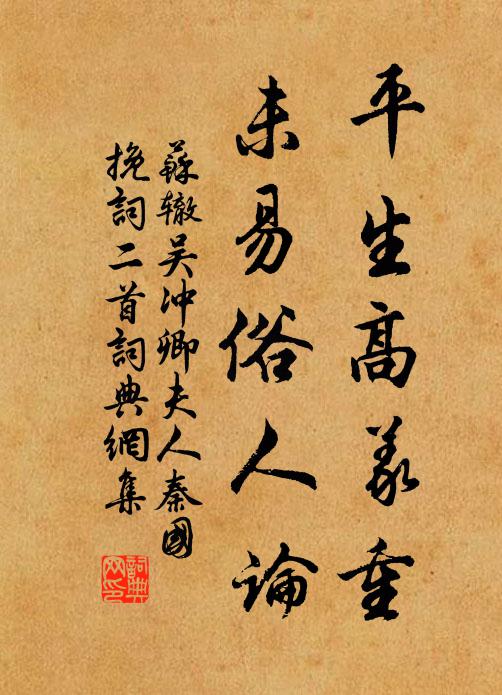 平生高义重
未易俗人論
蘇辙吴冲卿夫人秦國
挽詞二首詞典網集
詞典网印